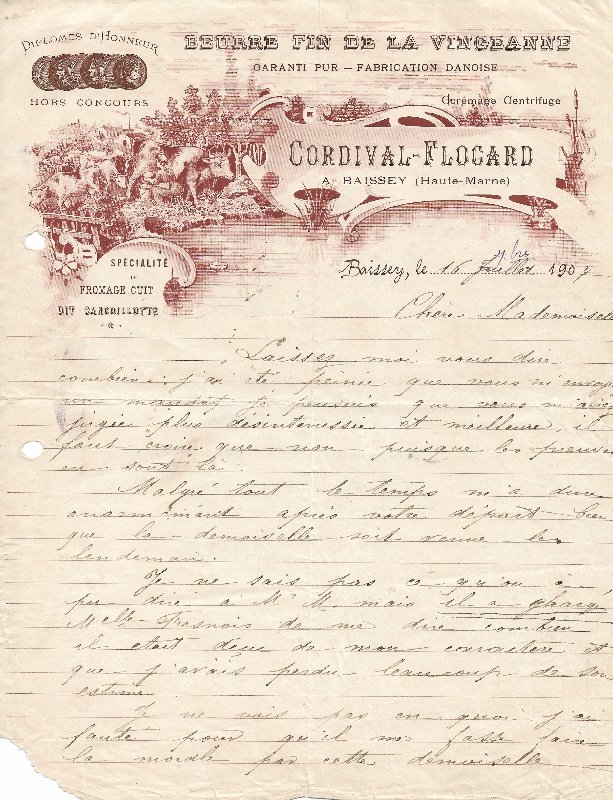 DIPLOMES D'HONNEUR
HORS CONCOURS
BEURRE FIN DE LA VINGEANNE
GARANTI PUR — FABRICATION DANOISE
Ecrémage Centrifuge
CORDIVAL-FLOGARD
A BAISSEY (Haute-Marne)
SPÉCIALITÉ
DE
FROMAGE CUIT
DIT CANCOILLOTTE
Baissey, le 16 Juillet 1907
Chère Mademoiselle
Laissez moi vous dire
combien j'ai été peinée que vous m'envoy
un mandat je pensais que vous m'avi
jugée plus désintéressée et meilleure, il
faut croire que non puisque les preuves
en sont là.
Malgré tout le temps m'a duré
énormément après votre départ bien
que la demoiselle soit venue le
lendemain.
Je ne sais pas ce qu'on a
pu dire à Mr M. mais il a chargé
Melle Fresnois de me dire combien
il était déçu de mon caractère et
que j'avais perdu beaucoup de son
estime
Je ne vois pas en quoi j'ai
fauté pour qu'il me fasse faire
la morale par cette demoiselle